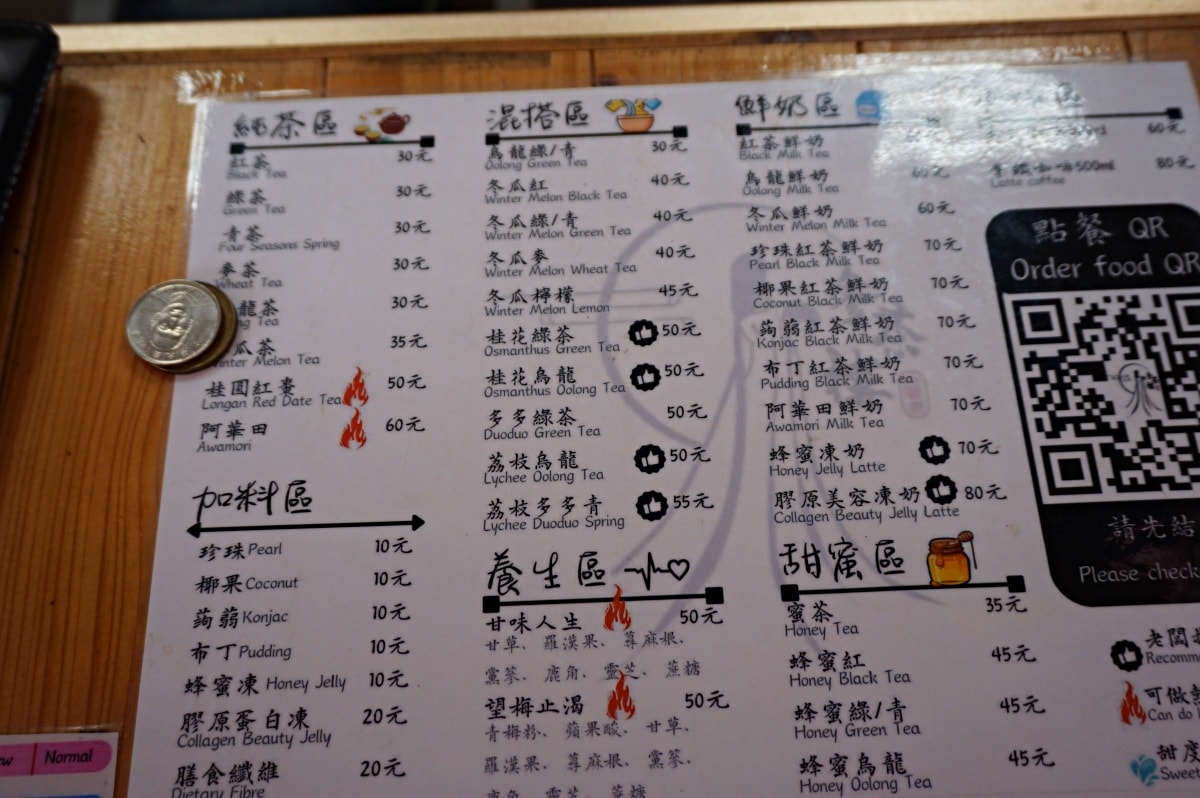 純茶區
紅茶 30元
Black Tea
綠茶 30元
Green Tea
青茶 30元
Four Seasons Spring
麥茶 30元
Wheat Tea
龍茶 30元
ng Tea
瓜茶 35元
Winter Melon Tea
桂圓紅棗 50元
Longan Red Date Tea
阿華田 60元
Awamori
加料區
珍珠 Pearl 10元
椰果 Coconut 10元
蒟蒻 Konjac 10元
布丁 Pudding 10元
蜂蜜凍 Honey Jelly 10元
膠原蛋白凍 20元
Collagen Beauty Jelly
膳食纖維 20元
Dietary Fibre
Normal
混搭區
烏龍綠/青 30元
Oolong Green Tea
冬瓜紅 40元
Winter Melon Black Tea
冬瓜綠/青 40元
Winter Melon Green Tea
冬瓜麥 40元
Winter Melon Wheat Tea
冬瓜檸檬 45元
Winter Melon Lemon
桂花綠茶 50元
Osmanthus Green Tea
桂花烏龍 50元
Osmanthus Oolong Tea
多多綠茶 50元
Duoduo Green Tea
荔枝烏龍 50元
Lychee Oolong Tea
荔枝多多青 55元
Lychee Duoduo Spring
養生區
甘味人生 50元
甘草、羅漢果、蕁麻根、
黨蔘、鹿角、靈芝、蔗糖
望梅止渴 50元
青梅粉、蘋果酸、甘草、
羅漢果、蕁麻根、黨蔘、
鹿角、靈芝、蔗糖
鮮奶區
紅茶鮮奶
Black Milk Tea
烏龍鮮奶 60元
Oolong Milk Tea
冬瓜鮮奶 60元
Winter Melon Milk Tea
珍珠紅茶鮮奶 70元
Pearl Black Milk Tea
椰果紅茶鮮奶 70元
Coconut Black Milk Tea
蒟蒻紅茶鮮奶 70元
Konjac Black Milk Tea
布丁紅茶鮮奶 70元
Pudding Black Milk Tea
阿華田鮮奶 70元
Awamori Milk Tea
蜂蜜凍奶 70元
Honey Jelly Latte
膠原美容凍奶 80元
Collagen Beauty Jelly Latte
甜蜜區
蜜茶 35元
Honey Tea
蜂蜜紅 45元
Honey Black Tea
蜂蜜綠/青 45元
Honey Green Tea
蜂蜜烏龍 45元
Honey Oolong Tea
區
60元
500ml 80元
Latte coffee
點餐 QR
Order food QR
請先結
Please check
老闆
Recomme
可做
Can do
甜度
Sweet